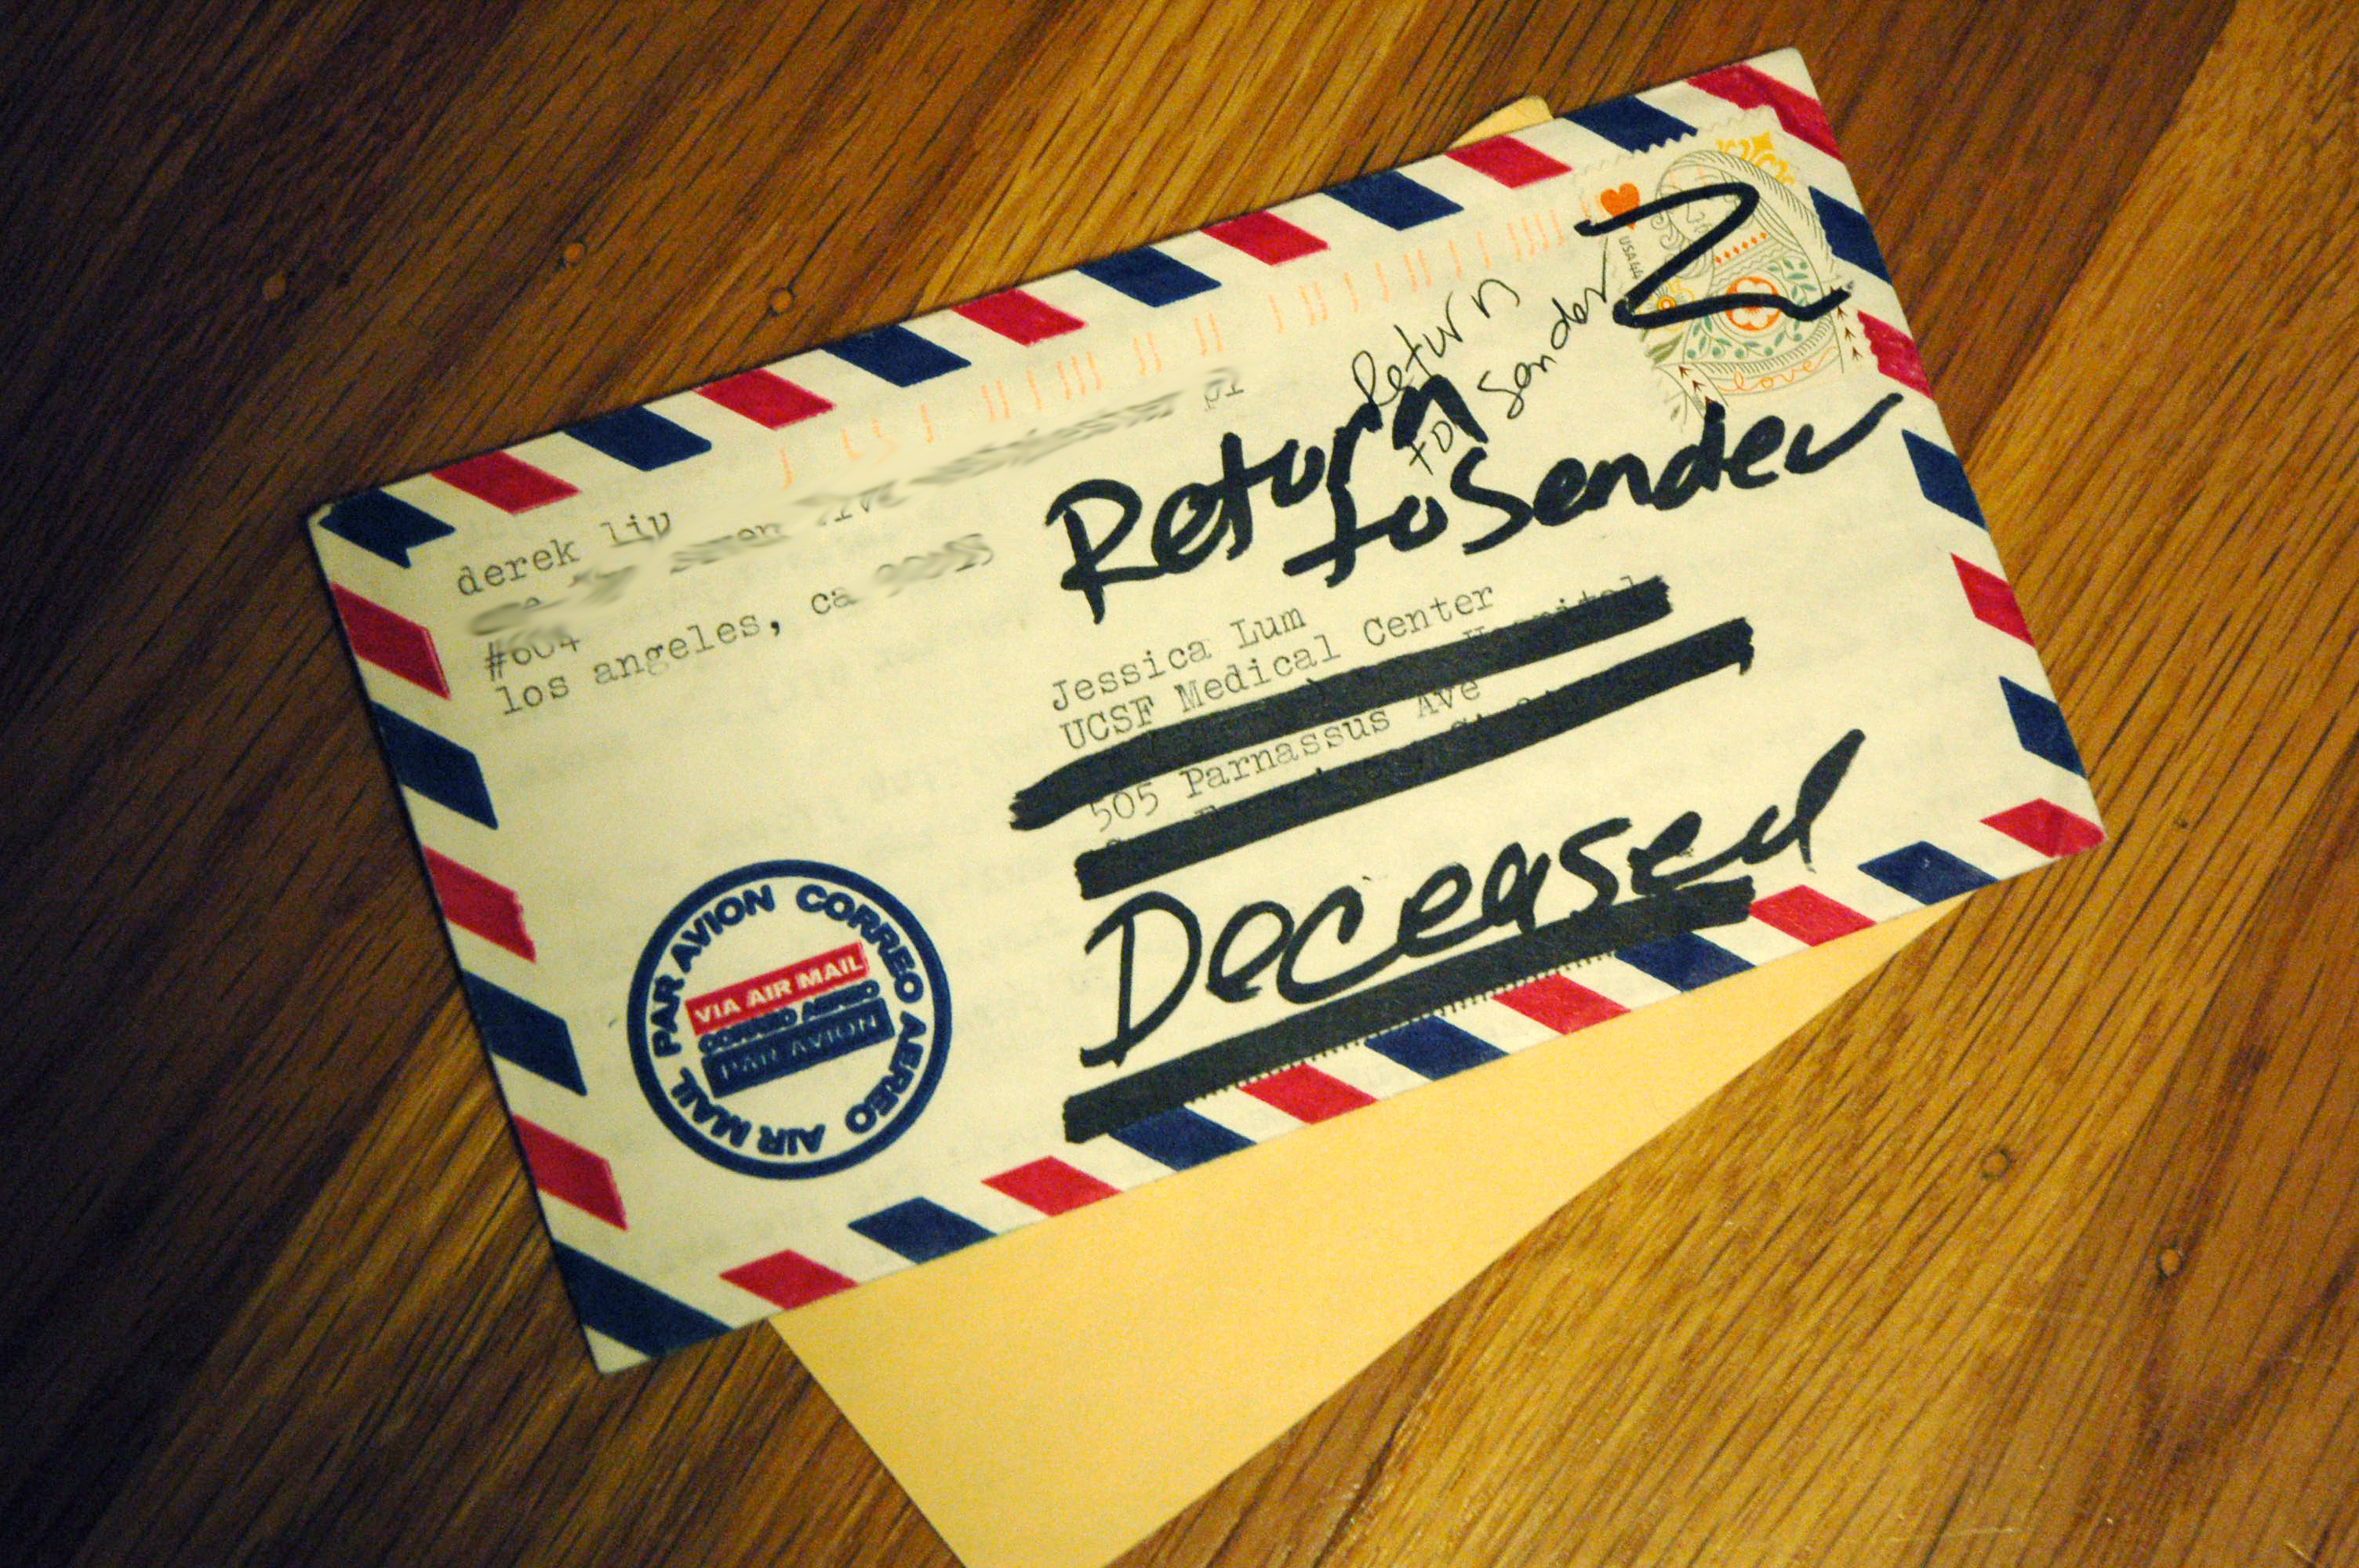 derek liu
#604
los angeles, ca
USA 44
love
Return
to Sender
2
Return
to Sender
Jessica Lum
UCSF Medical Center
505 Parnassus Ave
Deceased
PAR AVION CORREO AEREO AIR MAIL
VIA AIR MAIL
CORREO AEREO
PAR AVION